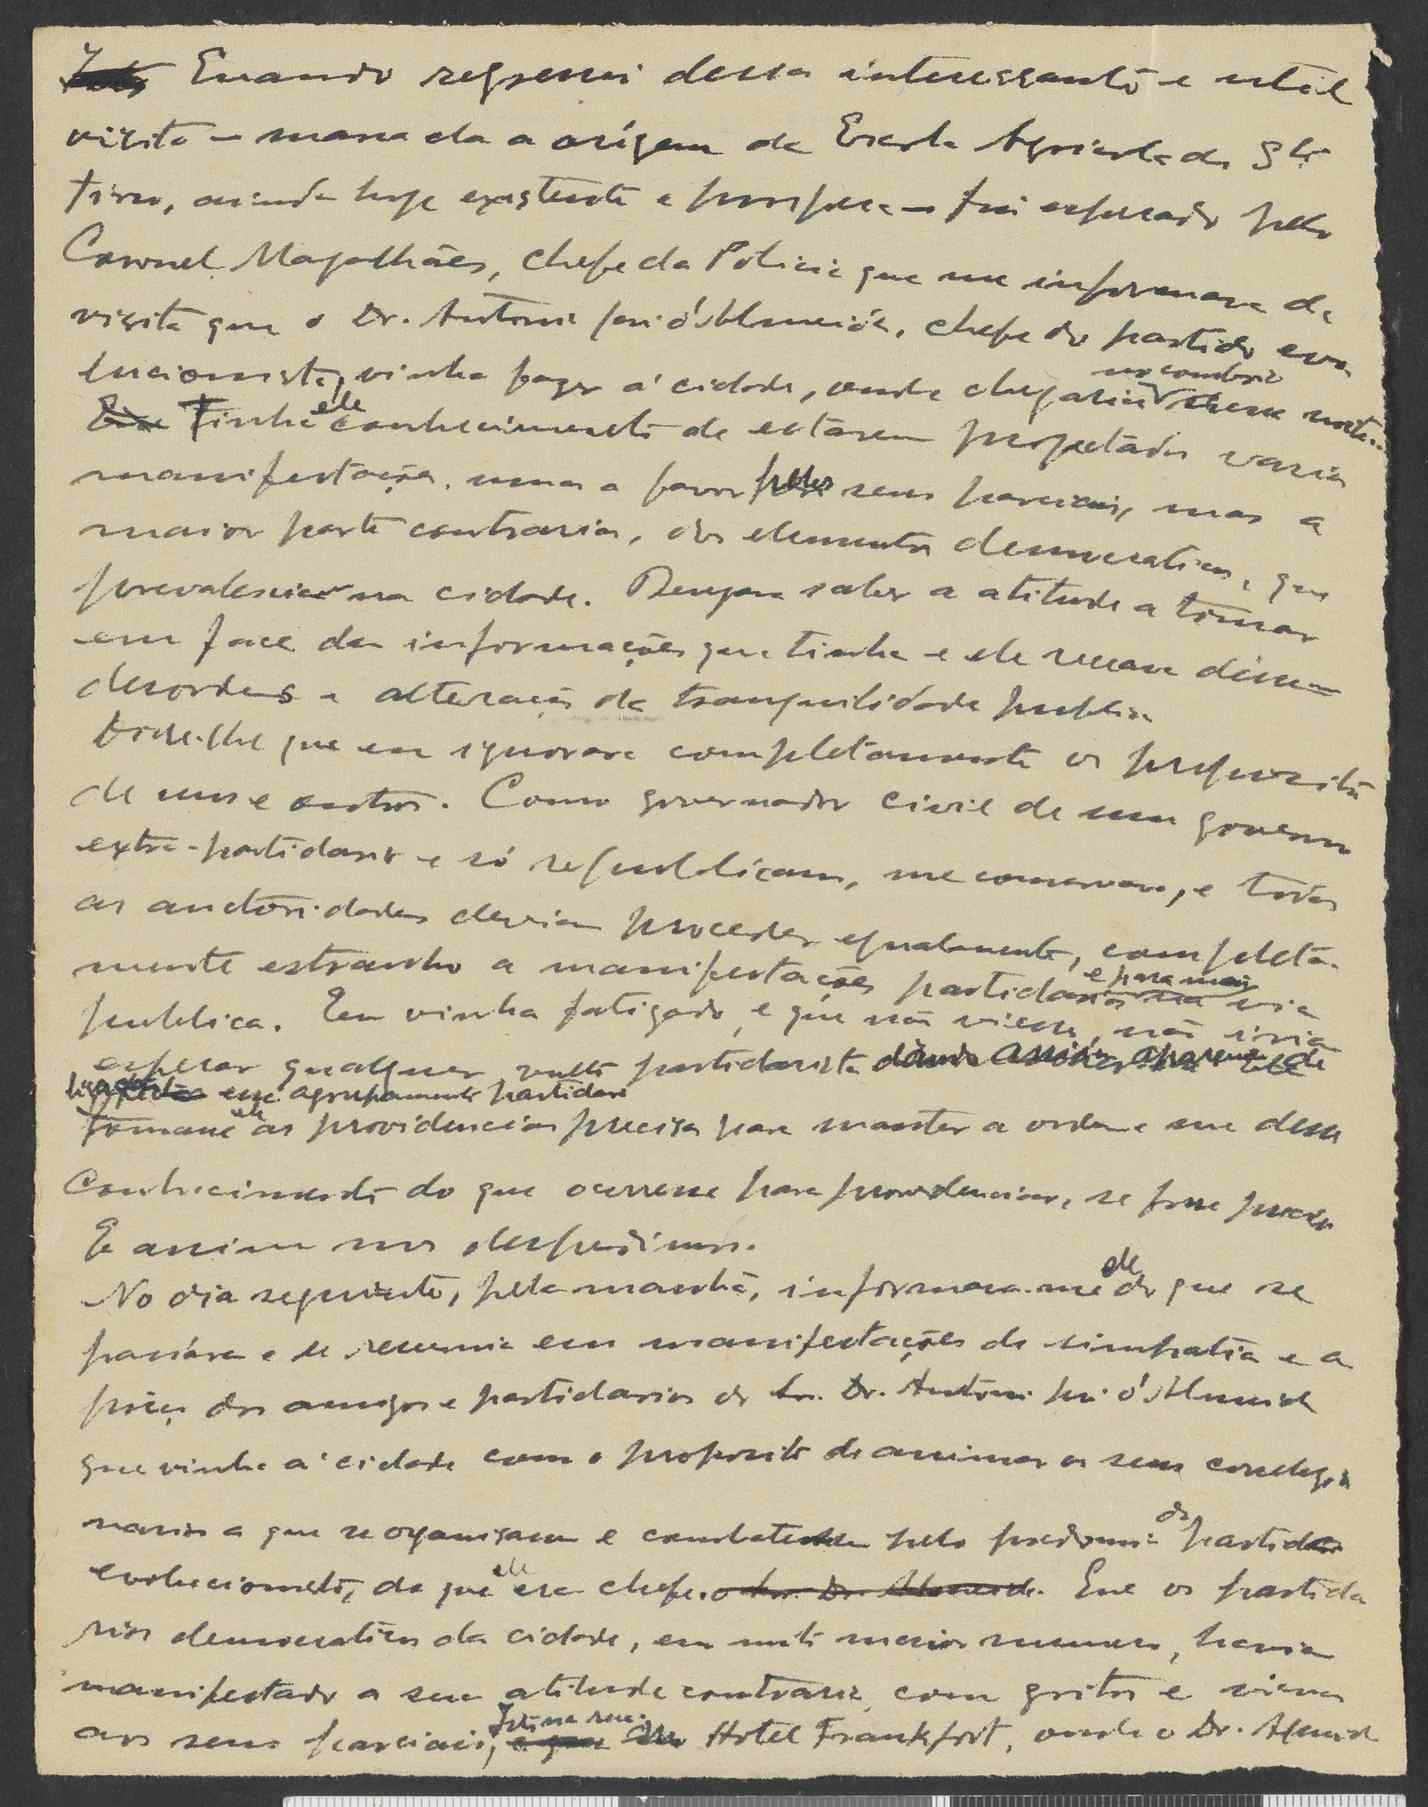 Quando regressei dessa interessante e util
visita – marca da a origem da Escola Agricola de Sto
Tirso, ainda hoje existente e prospera – fui esperado pelo
Coronel Magalhães, chefe da Policia que me informara da
visita que o Dr. Antonio José d'Almeida, chefe do partido evo
lucionista, vinha fazer á cidade, onde chegaria no comboio nessa noite.
Tinha ele conhecimento de estarem projetadas varias
manifestações, umas a favor pelos seus parciais, mas a
maior parte contrarias, dos elementos democraticos, que
prevaleciam na cidade. Desejava saber a atitude a tomar
em face das informações que tinha e ele receava
desordens e alteração da tranquilidade publica.
Disse-lhe que eu ignorava completamente os propositos
de uns e outros. Como governador civil de um governo
extra-partidario e só republicano, me conservava, e todas
as auctoridades deviam proceder egualmente, completa-
mente estranho a manifestações partidarias na via
publica. Eu vinha fatigado, e que não viesse, não iria
esperar qualquer vulto partidarista dando assim aparencia de
ligação a esse agrupamento partidario
Tomasse ele as providencias precisas para manter a ordem e me desse
conhecimento do que ocorresse para providenciar, se fosse preciso
E assim nos despedimos.
No dia seguinte, pela manhã, informara-me ele do que se
passára e se resumia em manifestações de simpatia e a
poio dos amigos e partidarios do Dr. Antonio José d'Almeida
que vinha á cidade com o proposito de animar os seus correligio
narios a que se organisassem e combatessem pelo predominio do partido
evolucionista, de que ele era chefe o Snr. Dr. Almeida. Que os partida
rios democraticos da cidade, em muito maior numero, haviam
manifestado a sua atitude contraria com gritos e vivas
aos seus parciais, Hotel Frankfort, onde o Dr. Almeida